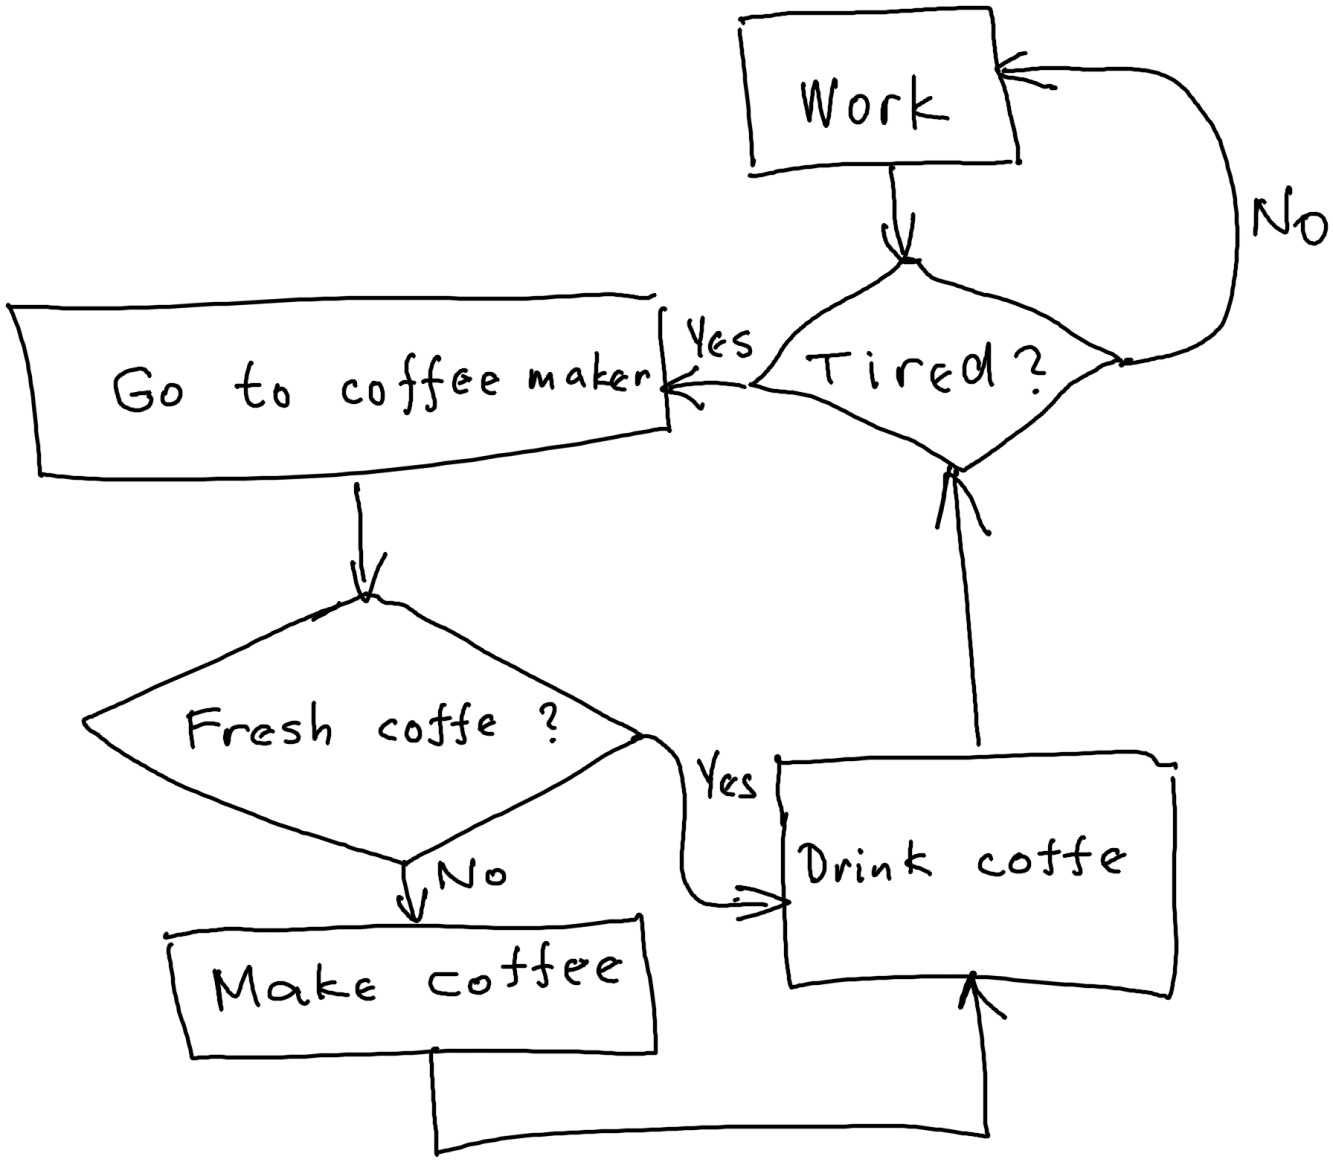 Work
No
Yes
Tired?
Go to coffee maker
Fresh coffe ?
Yes
No
Drink coffe
Make coffee